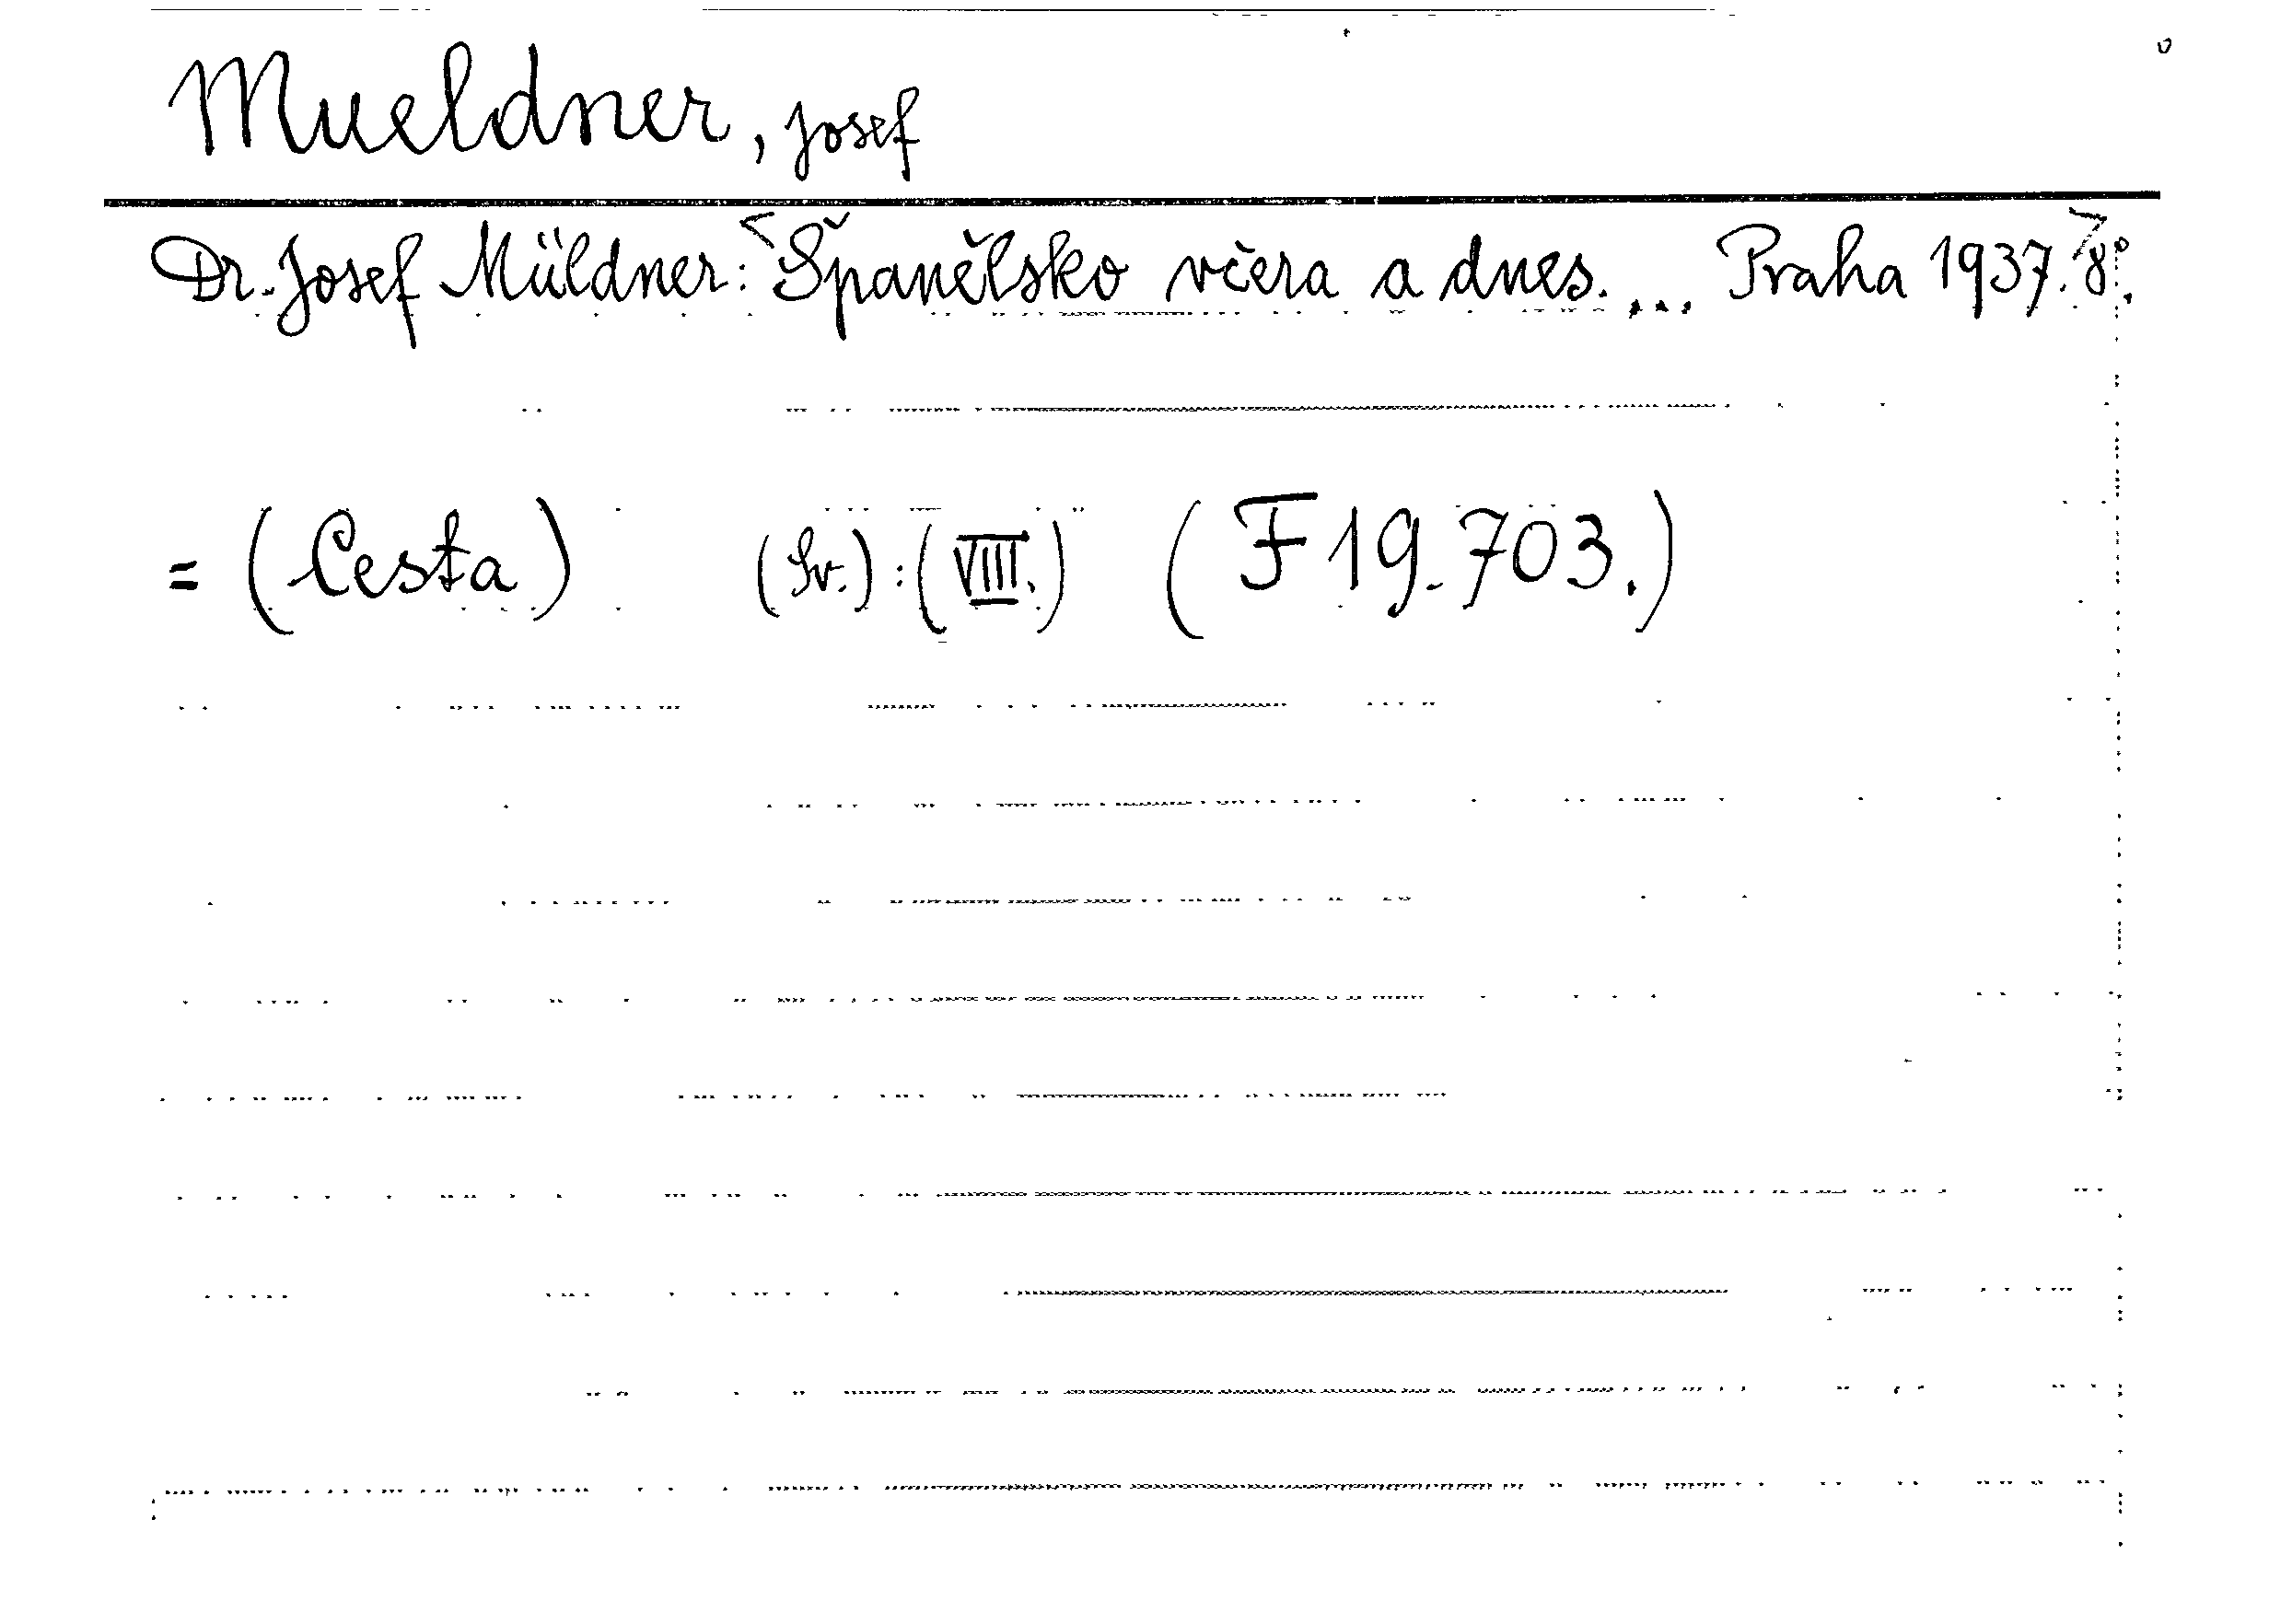 Mueldner, Josef
Dr. Josef Müldner: Španělsko včera a dnes. ... Praha 1937. 8°.
= (Cesta) (Sv.):(VIII.) (F 19.703.)